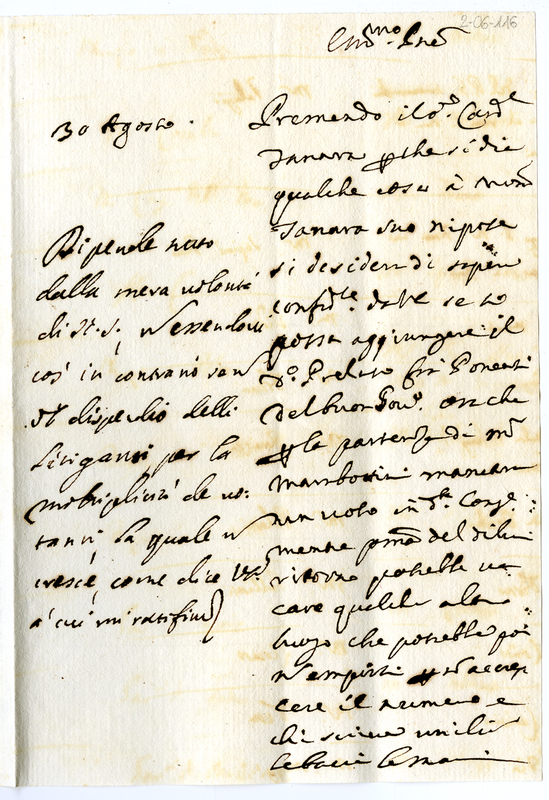 2-06-116
Em.mo Pne
Premendo il S.r Card.le
Tanara che si dia
qualche cosa à Mons.
Tanara suo nipote
si desidera di sapere
confid.te da VE se so
possa aggiungere il
d.o Prelato fra Ponenti
del buon Gov.o
la partenza di M.r
mancare
un voto in d.ta Cong.e
mentre p.ma del di lui
ritorno potrebbe va-
care qualche altro
luogo che potrebbe poi
n empirsi accres
cere il numero e
chi scrive umil.te
le bacia le mani
30 Agosto.
Dipende
dalla mera volontà
di N. S. n essendoci
cos' in contrario se n
il dispendio delli
litiganti per la
moltiplicità de vo-
tanti, la quale n
cresce, come dice VE.
a cui mi ratifico